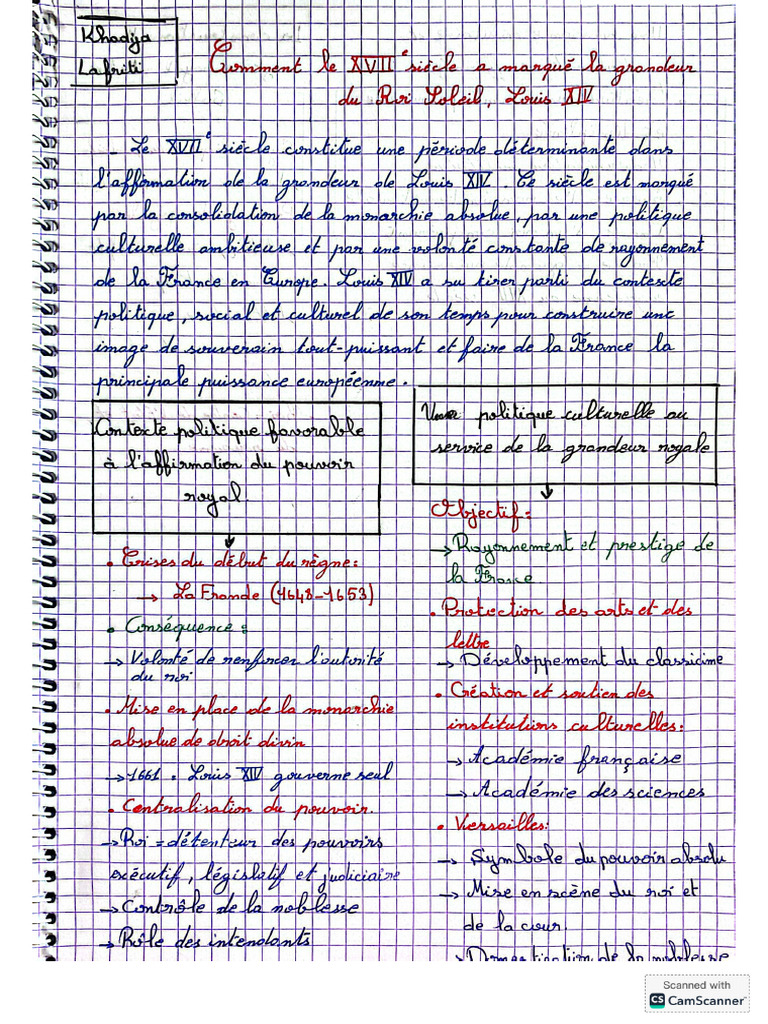 Khadija
Lafriti
Comment le XVII e siècle a marqué la grandeur
du Roi Soleil, Louis XIV
_ Le XVII e siècle constitue une période déterminante dans
l'affirmation de la grandeur de Louis XIV. Ce siècle est marqué
par la consolidation de la monarchie absolue, par une politique
culturelle ambitieuse et par une volonté constante de rayonnement
de la France en Europe. Louis XIV a su tirer parti du contexte
politique, social et culturel de son temps pour construire une
image de souverain tout-puissant et faire de la France la
principale puissance européenne.
Contexte politique favorable
à l'affirmation du pouvoir
royal
• Crises du début du règne:
→ La Fronde (1648-1653)
• Conséquence:
→ Volonté de renforcer l'autorité
du roi
• Mise en place de la monarchie
absolue de droit divin
→ 1661. Louis XIV gouverne seul
• Centralisation du pouvoir.
→ Roi = détenteur des pouvoirs
exécutif, législatif et judiciaire
→ Contrôle de la noblesse
→ Rôle des intendants
Une politique culturelle au
service de la grandeur royale
Objectif:
→ Rayonnement et prestige de
la France
• Protection des arts et des
lettre
→ Développement du classicime
• Création et soutien des
institutions culturelles:
→ Académie française
→ Académie des sciences
• Versailles:
→ Symbole du pouvoir absolu
→ Mise en scène du roi et
de la cour.
→ Domestication de la noblesse
Scanned with
CS CamScanner